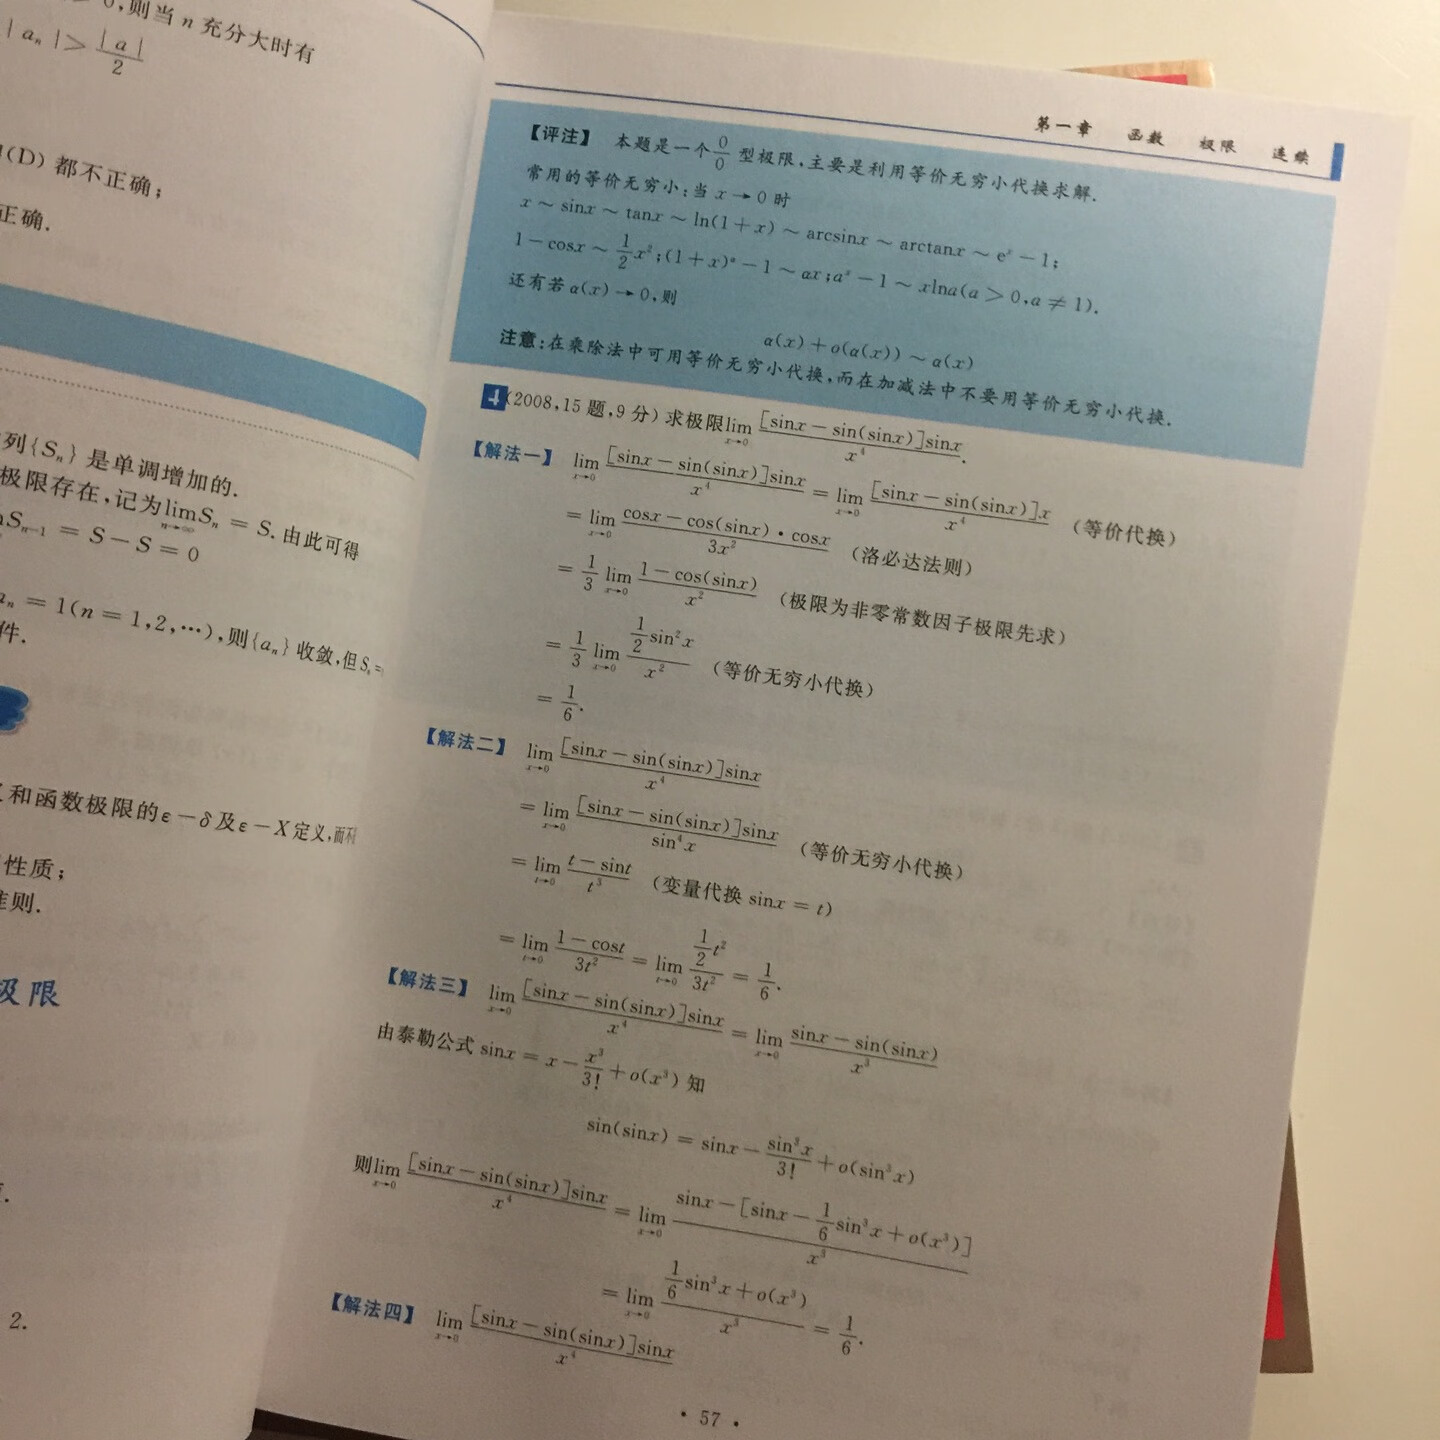 0,则当 n 充分大时有
| aₙ |> | a | / 2
(D) 都不正确;
正确.
列{Sₙ} 是单调增加的.
极限存在,记为 lim_{n→∞} Sₙ = S. 由此可得
Sₙ₋₁ = S − S = 0
aₙ = 1(n = 1,2,⋯),则{aₙ} 收敛,但 Sₙ =
件.
和函数极限的 ε − δ 及 ε − X 定义,而不
性质;
准则.
极限
2.
第一章 函数 极限 连续
【评注】 本题是一个 0/0 型极限,主要是利用等价无穷小代换求解.
常用的等价无穷小:当 x → 0 时
x ~ sinx ~ tanx ~ ln(1 + x) ~ arcsinx ~ arctanx ~ eˣ − 1;
1 − cosx ~ 1/2 x²;(1 + x)^α − 1 ~ αx;aˣ − 1 ~ xlna(a > 0,a ≠ 1).
还有若 α(x) → 0,则
α(x) + o(α(x)) ~ α(x)
注意:在乘除法中可用等价无穷小代换,而在加减法中不要用等价无穷小代换.
4 (2008,15 题,9 分) 求极限 lim_{x→0} [sinx − sin(sinx)]sinx / x⁴.
【解法一】 lim_{x→0} [sinx − sin(sinx)]sinx / x⁴ = lim_{x→0} [sinx − sin(sinx)]x / x⁴ (等价代换)
= lim_{x→0} cosx − cos(sinx) · cosx / 3x² (洛必达法则)
= 1/3 lim_{x→0} 1 − cos(sinx) / x² (极限为非零常数因子极限先求)
= 1/3 lim_{x→0} 1/2 sin²x / x² (等价无穷小代换)
= 1/6.
【解法二】 lim_{x→0} [sinx − sin(sinx)]sinx / x⁴
= lim_{x→0} [sinx − sin(sinx)]sinx / sin⁴x (等价无穷小代换)
= lim_{t→0} t − sint / t³ (变量代换 sinx = t)
= lim_{t→0} 1 − cost / 3t² = lim_{t→0} 1/2 t² / 3t² = 1/6.
【解法三】 lim_{x→0} [sinx − sin(sinx)]sinx / x⁴ = lim_{x→0} sinx − sin(sinx) / x³
由泰勒公式 sinx = x − x³/3! + o(x³) 知
sin(sinx) = sinx − sin³x/3! + o(sin³x)
则 lim_{x→0} [sinx − sin(sinx)]sinx / x⁴ = lim_{x→0} sinx − [sinx − 1/6 sin³x + o(x³)] / x³
= lim_{x→0} 1/6 sin³x + o(x³) / x³ = 1/6.
【解法四】 lim_{x→0} [sinx − sin(sinx)]sinx / x⁴
· 57 ·